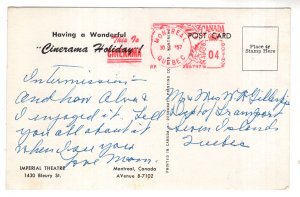 Having a Wonderful
"Cinerama Holiday!
This Is
CINERAMA
MONTREAL
30 X '57
QUEBEC
CANADA
04
POST CARD
Place
Stamp Here
Intermission
And how Alma &
I enjoyed it. Tell
you all about it
when I see you
Love Mom.
Mr & Mrs W. R. Gillespie
Dept of Transport
Seven Islands
Quebec
IMPERIAL THEATRE
1430 Bleury St.
Montreal, Canada
AVenue 8-7102